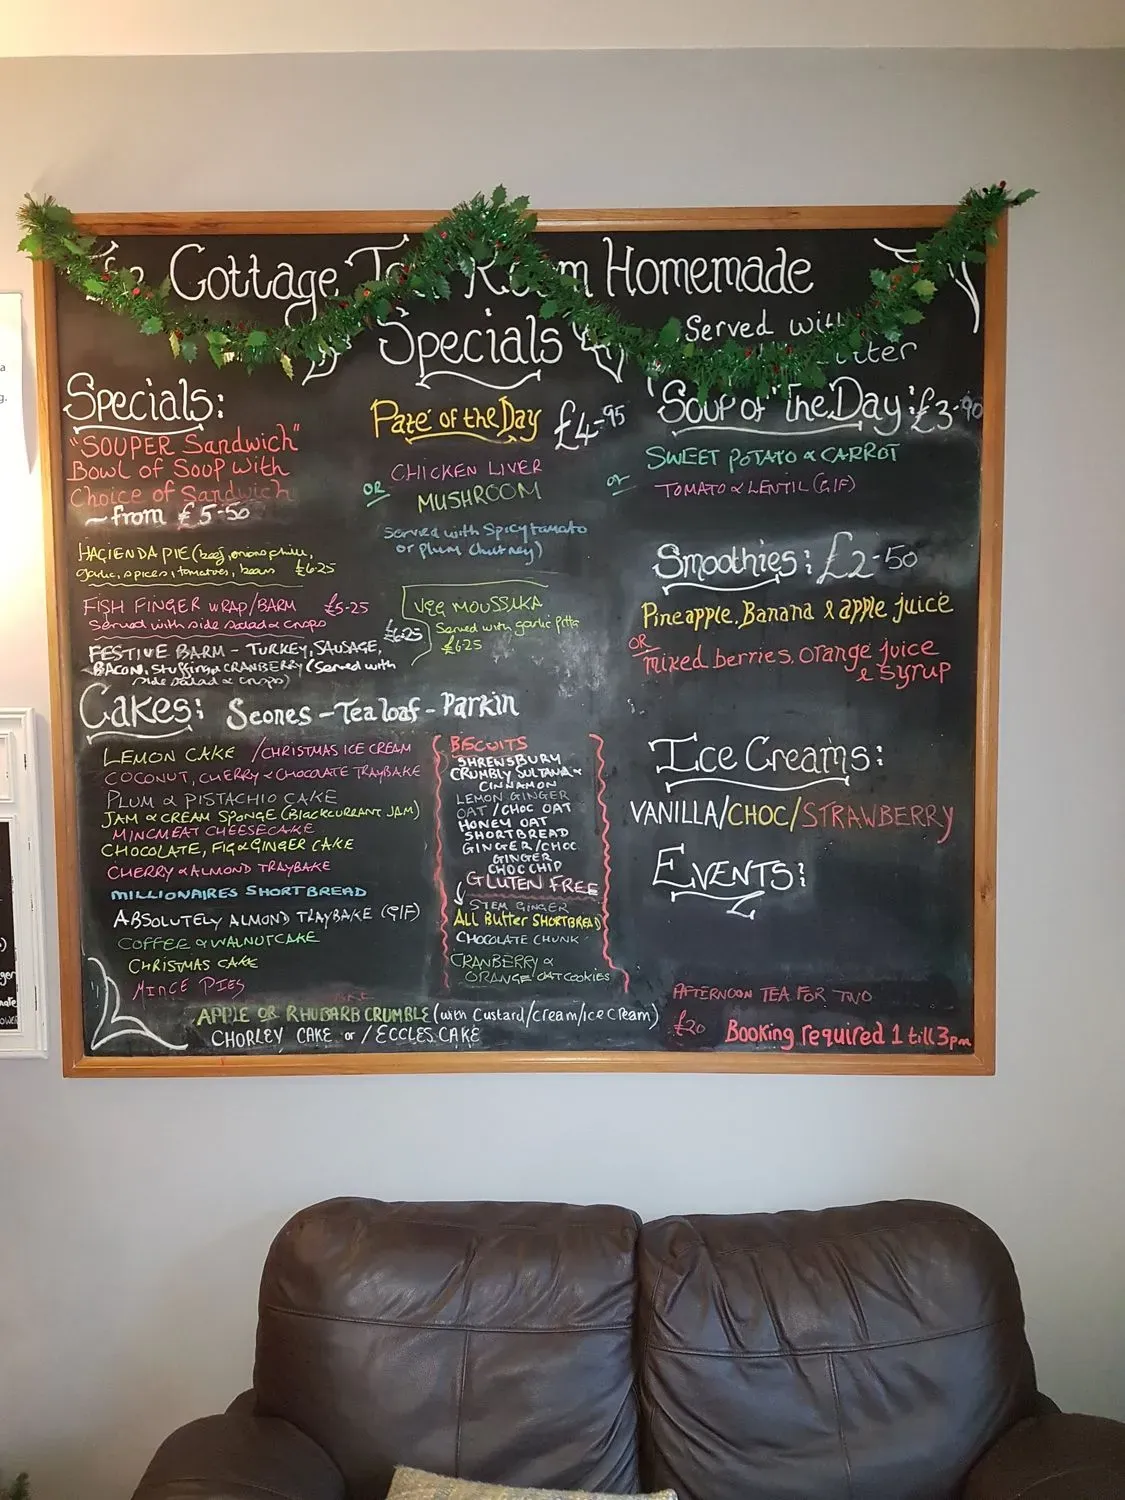 The Cottage Tea Room Homemade
Specials
Served with
Specials:
"SOUPER Sandwich"
Bowl of Soup with
Choice of Sandwich
- from £5-50
HACIENDA PIE (beef, onions, chilli,
garlic, spices, tomatoes, beans £6-25
FISH FINGER WRAP/BARM £5-25
Served with side salad & crisps
FESTIVE BARM - TURKEY, SAUSAGE, £6-25
BACON, Stuffing & CRANBERRY (Served with
side salad & crisps)
Pate of the Day £4-95
CHICKEN LIVER
OR
MUSHROOM
Served with Spicy tomato
or plum chutney)
VEG MOUSSIKA
Served with garlic pitta
£6-25
"Soup of The Day: £3-90
SWEET POTATO & CARROT
or
TOMATO & LENTIL (G/F)
Smoothies: £2-50
Pineapple. Banana & apple juice
OR
mixed berries. orange juice
& syrup
Cakes: Scones - Tea loaf - Parkin
LEMON CAKE /CHRISTMAS ICE CREAM
COCONUT, CHERRY & CHOCOLATE TRAYBAKE
PLUM & PISTACHIO CAKE
JAM & CREAM SPONGE (BLACKCURRANT JAM)
MINCMEAT CHEESECAKE
CHOCOLATE, FIG & GINGER CAKE
CHERRY & ALMOND TRAYBAKE
MILLIONAIRES SHORTBREAD
ABSOLUTELY ALMOND TRAYBAKE (G/F)
COFFEE & WALNUT CAKE
CHRISTMAS CAKE
MINCE PIES
APPLE OR RHUBARB CRUMBLE (with custard/cream/ice cream)
CHORLEY CAKE or / ECCLES CAKE
BISCUITS
SHRENSBURY
CRUMBLY SULTANA &
CINNAMON
LEMON GINGER
OAT / CHOC OAT
HONEY OAT
SHORTBREAD
GINGER/CHOC
GINGER
CHOC CHIP
GLUTEN FREE
STEM GINGER
All Butter SHORTBREAD
CHOCOLATE CHUNK
CRANBERRY &
ORANGE OAT COOKIES
Ice Creams:
VANILLA/CHOC/STRAWBERRY
EVENTS:
AFTERNOON TEA FOR TWO
£20 Booking required 1 till 3pm